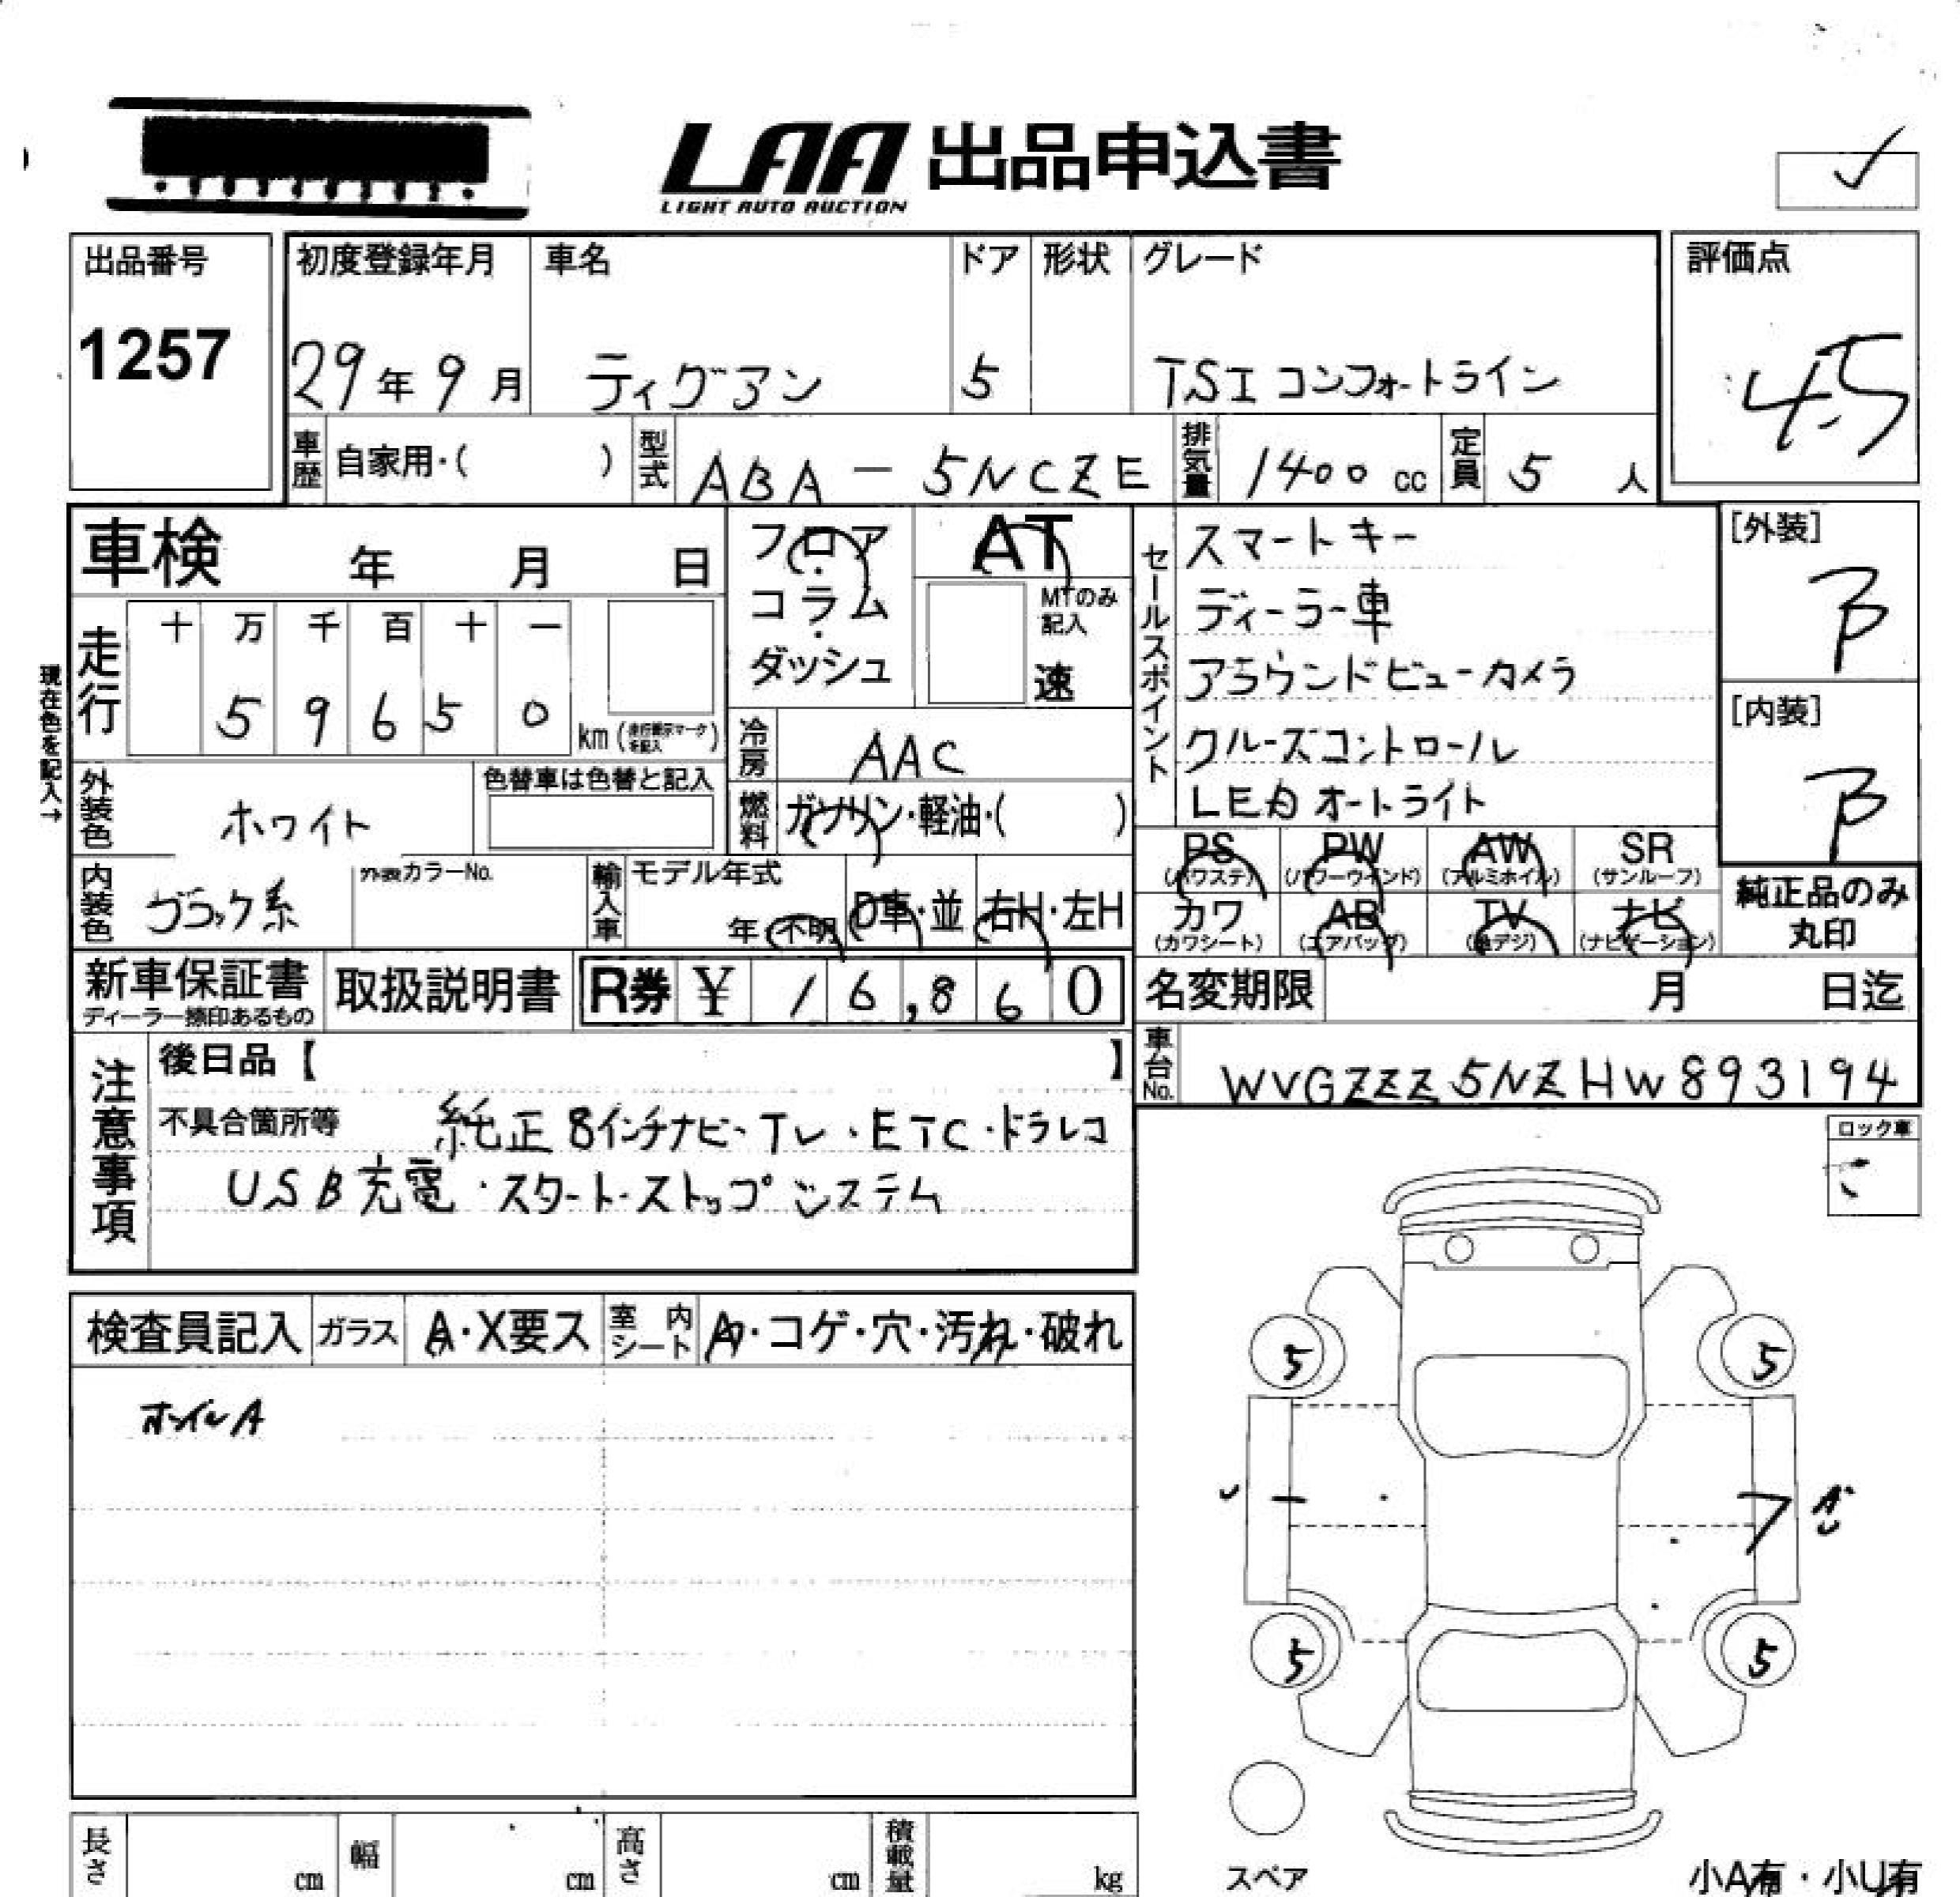 LAA 出品申込書
LIGHT AUTO AUCTION
出品番号 初度登録年月 車名 ドア 形状 グレード 評価点
1257 29年9月 ティグアン 5 TSI コンフォートライン 4.5
車歴 自家用・( ) 型式 ABA-5NCZE 排気量 1400 cc 定員 5 人
車検 年 月 日
フロア・コラム・ダッシュ
AT
MTのみ記入
速
セールスポイント
スマートキー
ディーラー車
アラウンドビューカメラ
クルーズコントロール
LED オートライト
[外装]
B
[内装]
B
現在色を記入→
走行 十 万 千 百 十 一
5 9 6 5 0 km (走行表示マークを記入)
冷房 AAC
外装色 ホワイト 色替車は色替と記入
燃料 ガソリン・軽油・( )
内装色 ブラック系 外装カラーNo.
輸入車 モデル年式 年・不明 D車・並 右H・左H
PS (パワステ) PW (パワーウインド) AW (アルミホイル) SR (サンルーフ)
カワ (カワシート) AB (エアバッグ) TV (地デジ) ナビ (ナビゲーション)
純正品のみ
丸印
新車保証書 取扱説明書 R券 ¥ 16,860
ディーラー捺印あるもの
名変期限 月 日迄
車台No. WVGZZZ5NZHW893194
注意事項
後日品【 】
不具合箇所等 純正8インチナビ・TV・ETC・ドラレコ
USB充電・スタート・ストップシステム
ロック車
検査員記入 ガラス A・X要ス 室内シート A・コゲ・穴・汚れ・破れ
ホイルA
5 5
5 5
スペア
長さ cm 幅 cm 高さ cm 積載量 kg
小A有・小U有